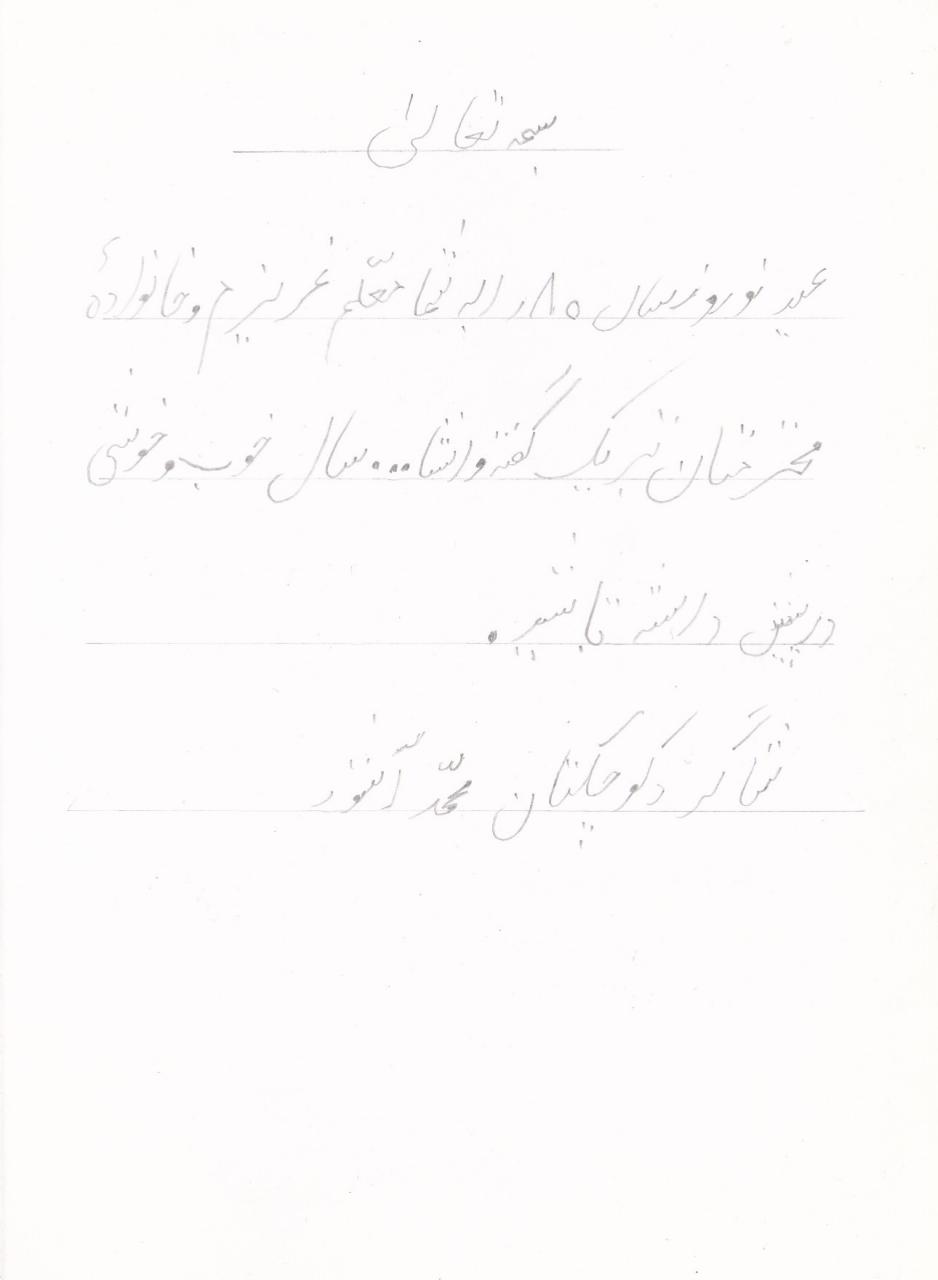 بسمه تعالی
عید نوروز سال ۸۰ را به شما معلّم عزیزم و خانوادهٔ
محترمتان تبریک گفته و انشا... سال خوب و خوشی
در پیش داشته باشید.
شاگرد کوچکتان محمّد